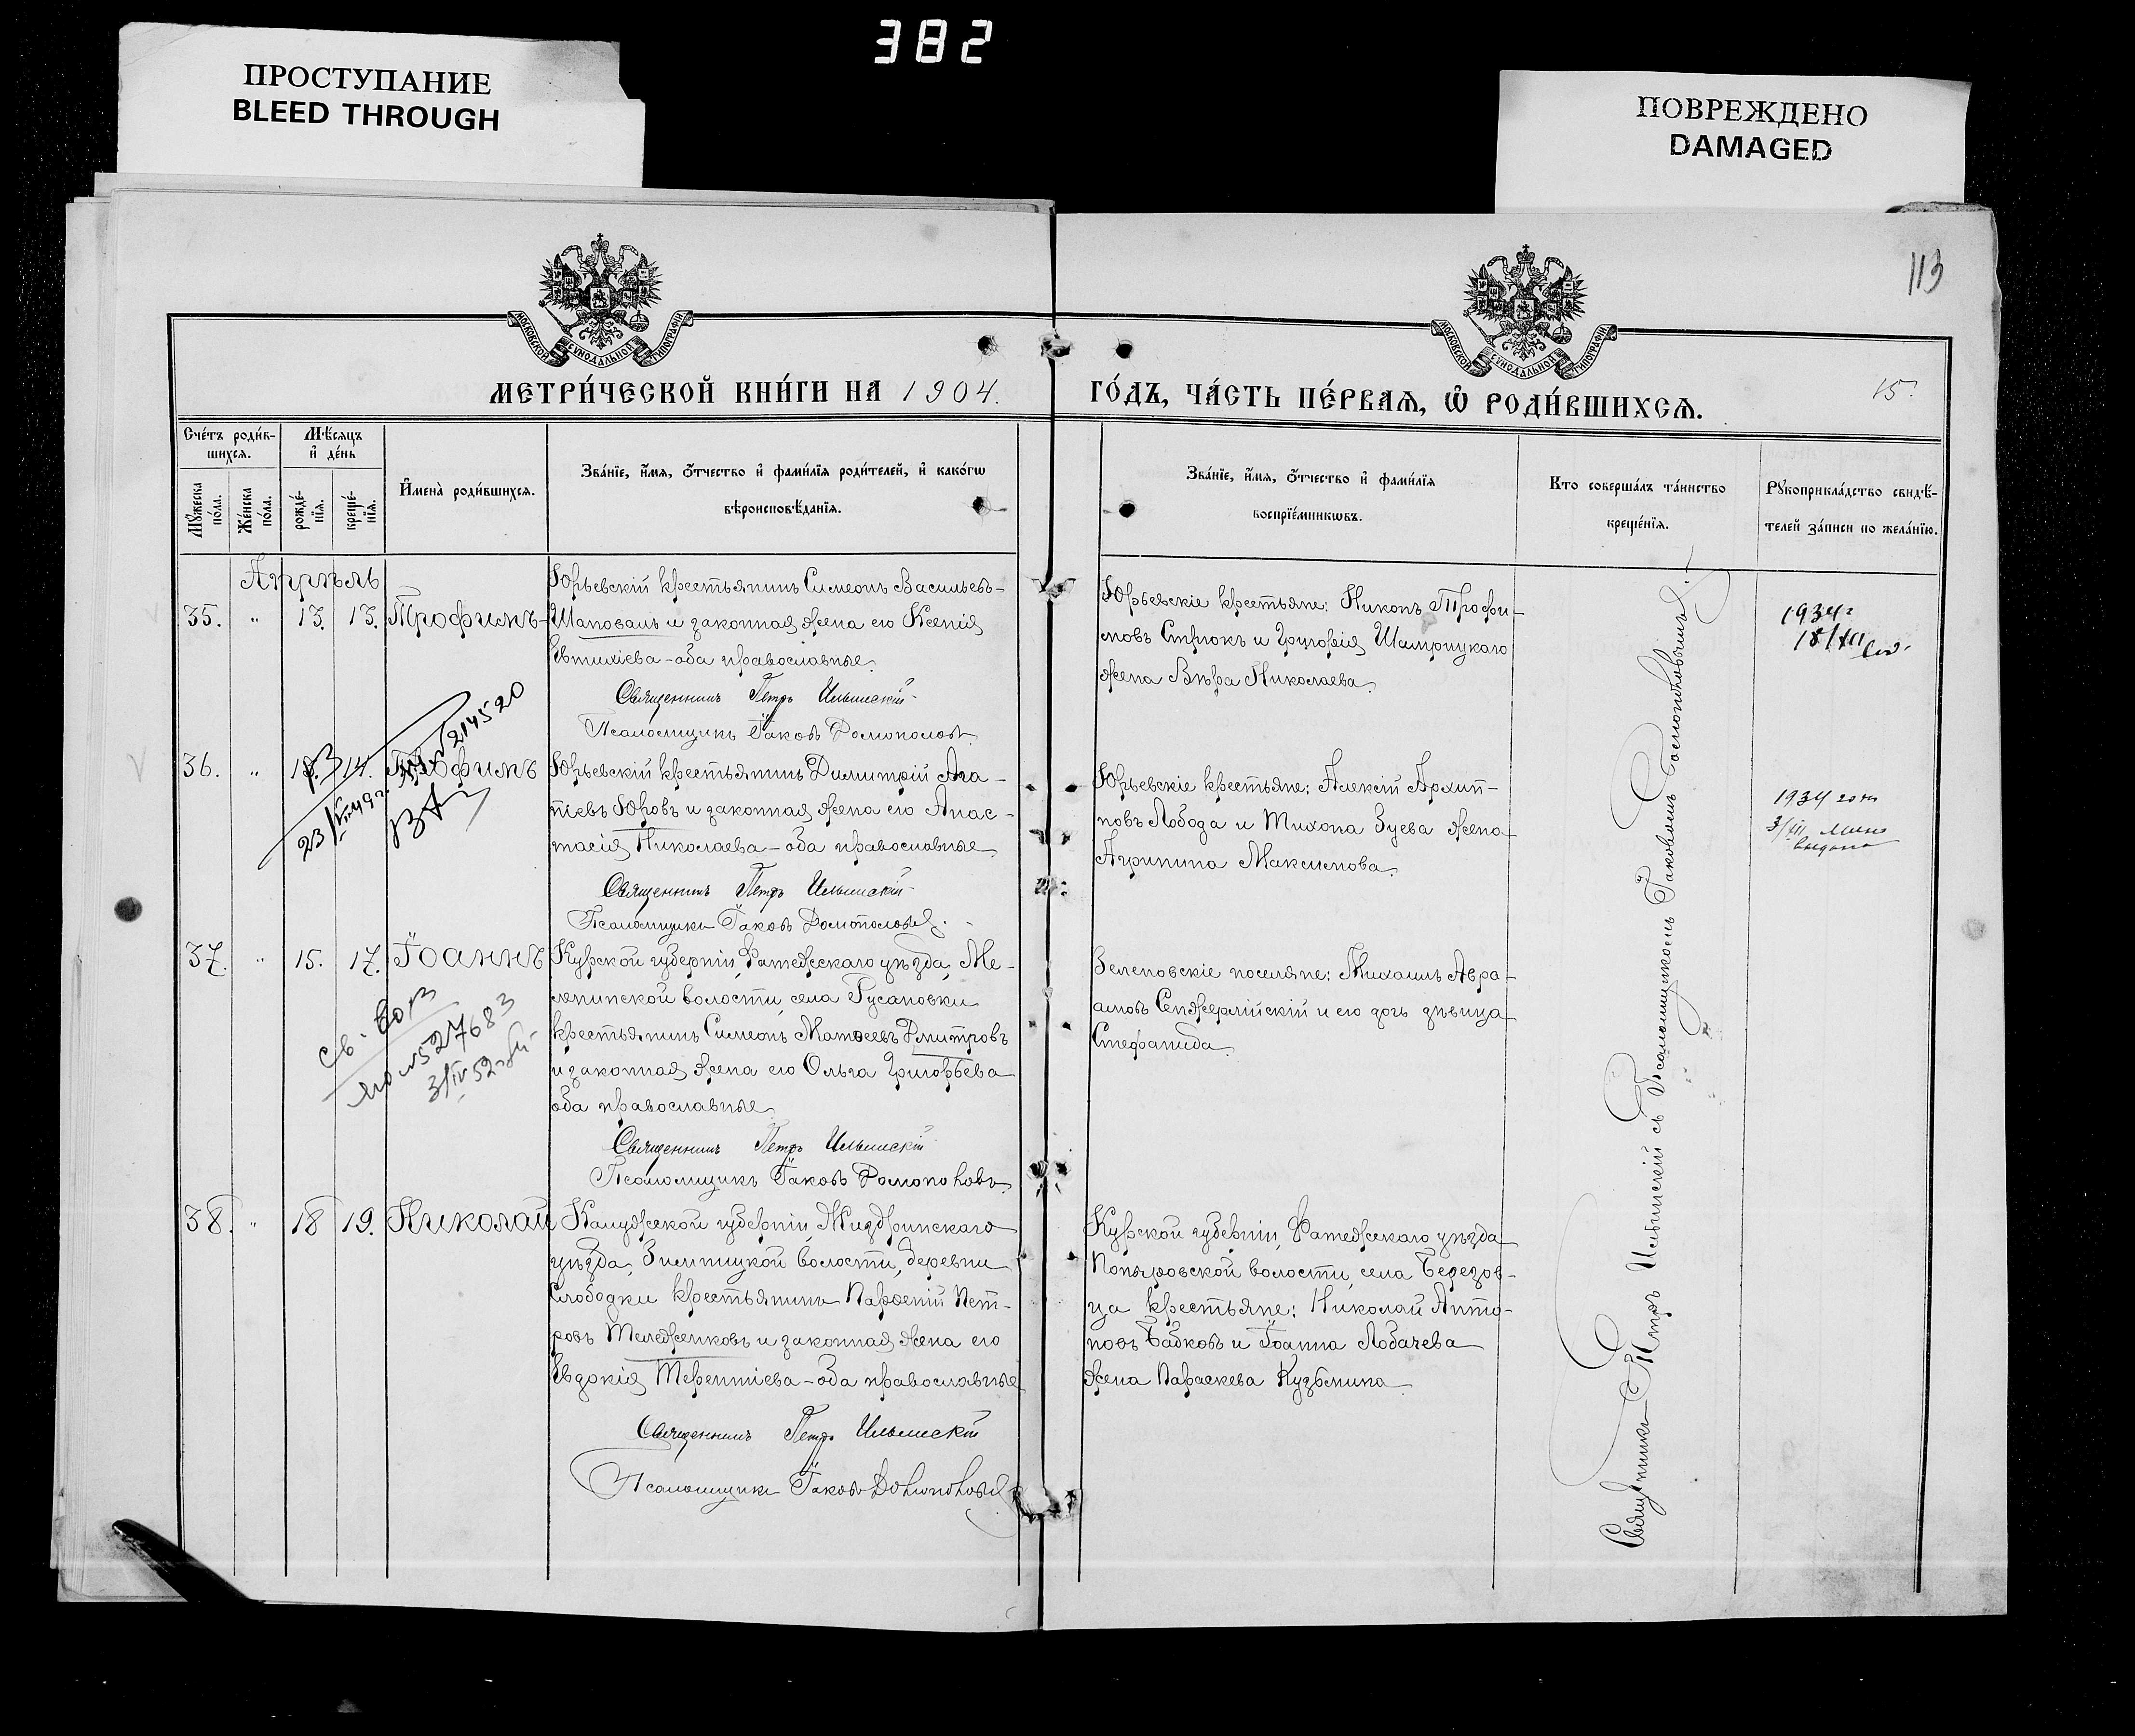 382
ПРОСТУПАНИЕ
BLEED THROUGH
ПОВРЕЖДЕНО
DAMAGED
113
МОСКОВСКОЙ СУНОДАЛЬНОЙ ТИПОГРАФІИ
МОСКОВСКОЙ СУНОДАЛЬНОЙ ТИПОГРАФІИ
МЕТРИ́ЧЕСКОЙ КНИ́ГИ НА 1904.
ГО́ДЪ, ЧА́СТЬ ПЕ́РВАѦ, Ѽ РОДИ́ВШИХСѦ.
15.
Сче́тъ роди́в-
шихся.
Мѣсяцъ
и҆ де́нь
Му́жеска
по́ла.
Же́нска
по́ла.
рожде́-
нїя.
креще́-
нїя.
И҆мена̀ роди́вшихся.
Зва́нїе, и҆́мя, о҆́тчество и҆ фами́лїя роди́телей, и҆ како́гѡ
вѣроисповѣ́данїя.
Зва́нїе, и҆́мя, о҆́тчество и҆ фами́лїя
воспрїе́мникѡвъ.
Кто соверша́лъ та́инство
креще́нїя.
Рукоприкла́дство свидѣ́-
телей за́писи по жела́нїю.
Апрѣль
35. " 13. 13. Трофимъ
Юрьевскій крестьянинъ Симеонъ Васильевъ
Шаповалъ и законная жена его Ксенія
Евтихіева - оба православные.
Священникъ Петръ Ильинскій
Псаломщикъ Іаковъ
Юрьевскіе крестьяне: Никонъ Трофи-
мовъ и Григорія
жена Вѣра Николаева.
1934г
18/
36. " 13 14. Трофимъ
214520
23/ 49г.
Юрьевскій крестьянинъ Димитрій Ага-
піевъ Юровъ и законная жена его Анас-
тасія Николаева - оба православные
Священникъ Петръ Ильинскій
Псаломщикъ Іаковъ
Юрьевскіе крестьяне: Алексій Архип-
повъ Лобода и Тихона Зуева жена
Агрипина Максимова.
1934 год
3/III
выдано
37. " 15. 17. Іоаннъ
527683
3/IV 52
Курской губерніи, Фатежскаго уѣзда, Ме-
ленинской волости, села Русановки
крестьянинъ Симеонъ Матѳеевъ Дмитровъ
и законная жена его Ольга Григорьева
оба православные.
Священникъ Петръ Ильинскій
Псаломщикъ Іаковъ
Зеленовскіе поселяне: Михаилъ Авра-
амовъ и его дочь дѣвица
Стефанида.
38. " 18 19. Николай
Калужской губерніи, Жиздринскаго
уѣзда, волости, деревни
Слободки крестьянинъ Парѳеній Пет-
ровъ Тележенковъ и законная жена его
Евдокія Терентіева - оба православные
Священникъ Петръ Ильинскій
Псаломщикъ Іаковъ
Курской губерніи, Фатежскаго уѣзда
волости, села Березов-
ца крестьяне: Николай Анто-
новъ Бабковъ и Іоанна Лобачева
жена Параскева Кузьмина.
Священникъ Петръ Ильинскій съ Псаломщикомъ Іаковомъ